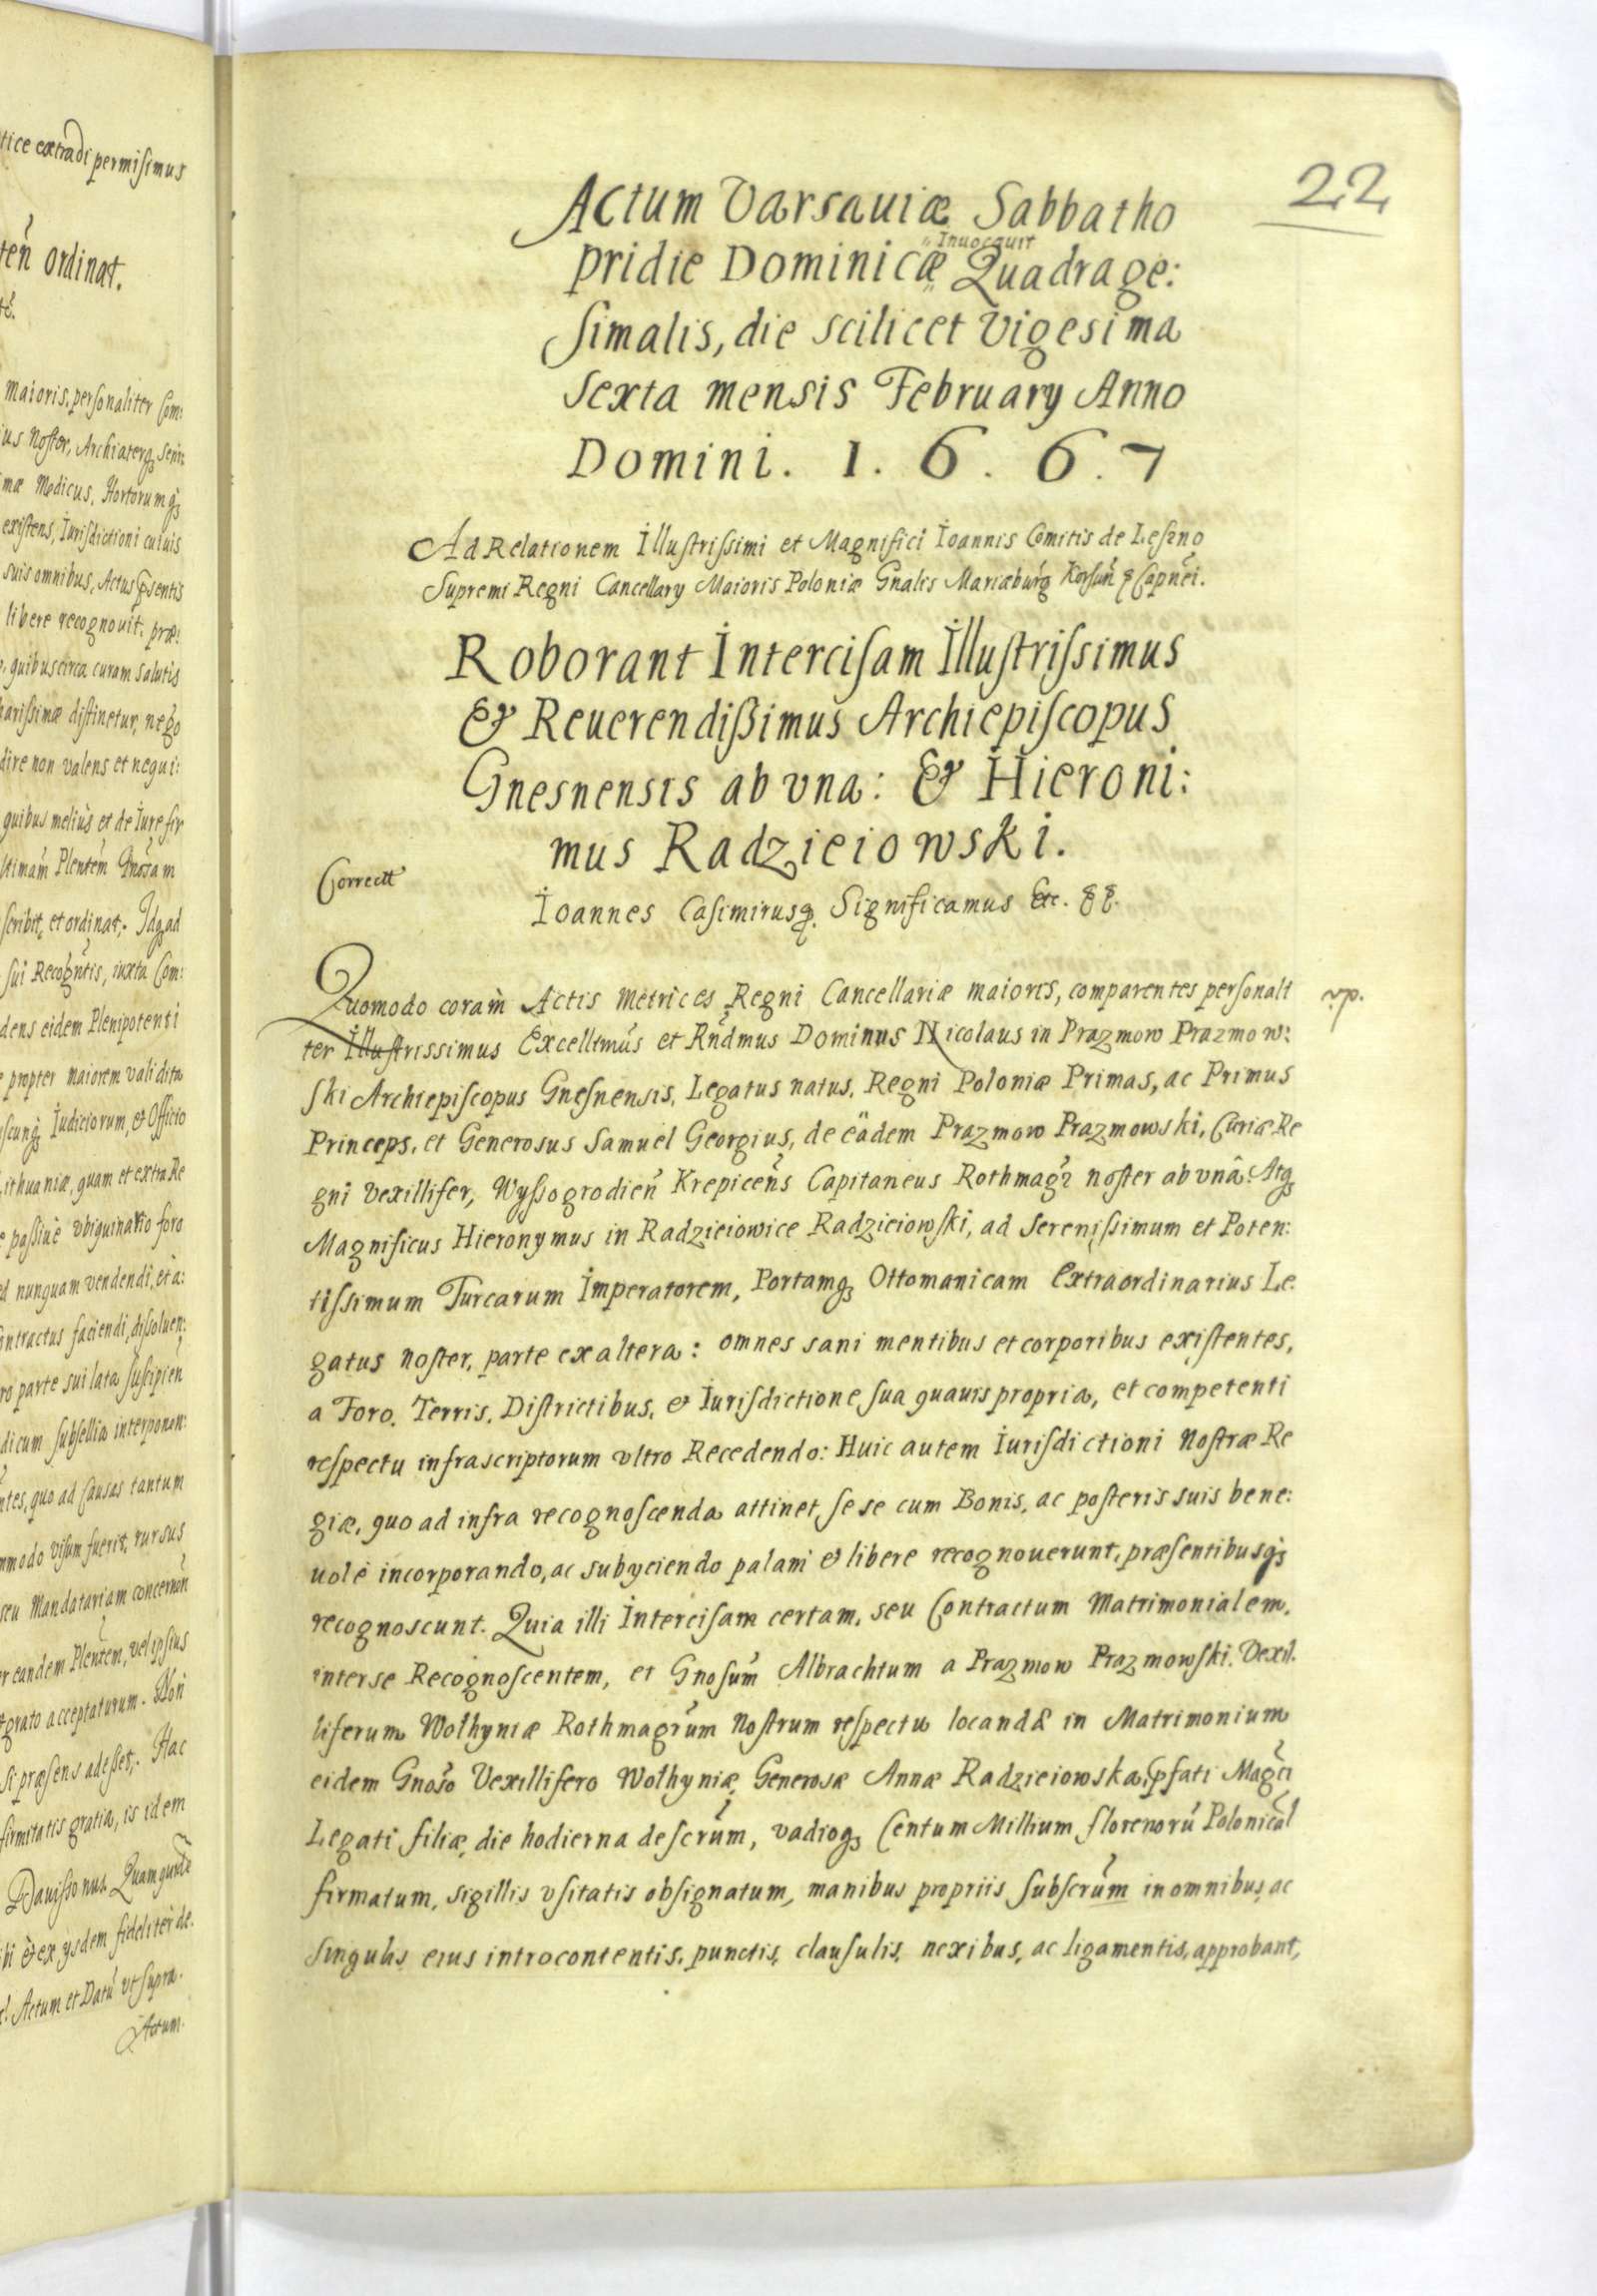 tice extradi permisimus
ten̄ ordinat.
maioris, personaliter Com:
ius Noster, Archiaterq3 Seni:
mæ Medicus, Hortorumq3
existens, Iurisdictioni cuiuis
suis omnibus, Actus p̱sentis
libere recognouit. præ:
quibus circa curam salutis
harissimæ distinetur, nego
dire non valens et nequi:
quibus meliùs et de Iure fir
ltimam̄ Plentem̄ Gnosam
scribit, et ordinat,. Idq3 ad
sui Recogn̄tis, iuxta Com:
dens eidem Plenipotenti
propter maiorem validita
scunq3 Iudiciorum, et Officio
Lithuaniæ, quam et extra Re
passiue vbiquinario foro
nunquam vendendi, et à:
ontractus faciendi, dissoluen:
ro parte sui lata suscipien̄
dicum subsellia interponen:
ntes, quo ad Causas tantum
mmodo visum fuerit, rursus
seu Mandatariam concernen̄
r eandem Plentem, vel ipsius
grato acceptaturum. Non̄
si præsens adesset,. Hac
firmitatis gratia, is idem
Dauissonus. Quam quidē
ibi et ex ysdem fideliter de.
Actum et Datū vt supra.
Actum.
22
Actum Varsauiæ Sabbatho
Inuocauit
pridie Dominicæ Quadrage:
simalis, die scilicet Vigesima
Sexta mensis February Anno
Domini. 1. 6. 6. 7
Ad Relationem Illustrissimi et Magnifici Ioannis Comitis de Leszno
Supremi Regni Cancellary Maioris Poloniæ Gnalis Mariæburg̃ Korsun̄ & Capnēi.
Roborant Intercisam Illustrissimus
& Reuerendissimus Archiepiscopus
Gnesnensis ab vna: & Hieroni:
mus Radzieiowski.
Correctt
Ioannes Casimirusq3. Significamus Etc. &&.
Quomodo coram̀ Actis Metrices Regni Cancellariæ maioris, comparentes personali
vp.
ter Illustrissimus Excellmūs et Rn̄dmus Dominus Nicolaus in Prazmow Prazmow:
ski Archiepiscopus Gnesnensis, Legatus natus, Regni Poloniæ Primas, ac Primus
Princeps, et Generosus Samuel Georgius, de eädem Prazmow Prazmowski, Curiæ Re
gni Vexillifer, Wyssogrodien̄ Krepicen̄s Capitaneus Rothmagr̄ noster ab vnâ: Atq3
Magnificus Hieronymus in Radzieiowice Radzieiowski, ad Serenissimum et Poten:
tissimum Turcarum Imperatorem, Portamq3 Ottomanicam Extraordinarius Le:
gatus noster, parte ex altera: omnes sani mentibus et corporibus existentes,
a Foro, Terris, Districtibus, & Iurisdictione sua quauis propria, et competenti
respectu infrascriptorum vltro Recedendo: Huic autem Iurisdictioni Nostræ Re
giæ, quo ad infra recognoscenda attinet, se se cum Bonis, ac posteris suis bene:
uolè incorporando, ac subyciendo palam̀ & libere recognouerunt, præsentibusq3
recognoscunt. Quia illi Intercisam certam, seu Contractum Matrimonialem,
inter se Recognoscentem, et Gnosum̄ Albrachtum a Prazmow Prazmowski. Vexil.
liferum Wołhyniæ Rothmagrum̄ Nostrum respectu locandæ in Matrimonium
eidem Gnosō Vexillifero Wołhyniæ, Generosæ Annæ Radzieiowska, p̱fati Magc̄i
Legati filiæ, die hodierna descrūm, vadioq3 Centum Millium florenorū Polonical̄
firmatum, sigillis vsitatis obsignatum, manibus propriis subscrūm in omnibus, ac
singulis eius introcontentis, punctis, clausulis, nexibus, ac ligamentis, approbant,